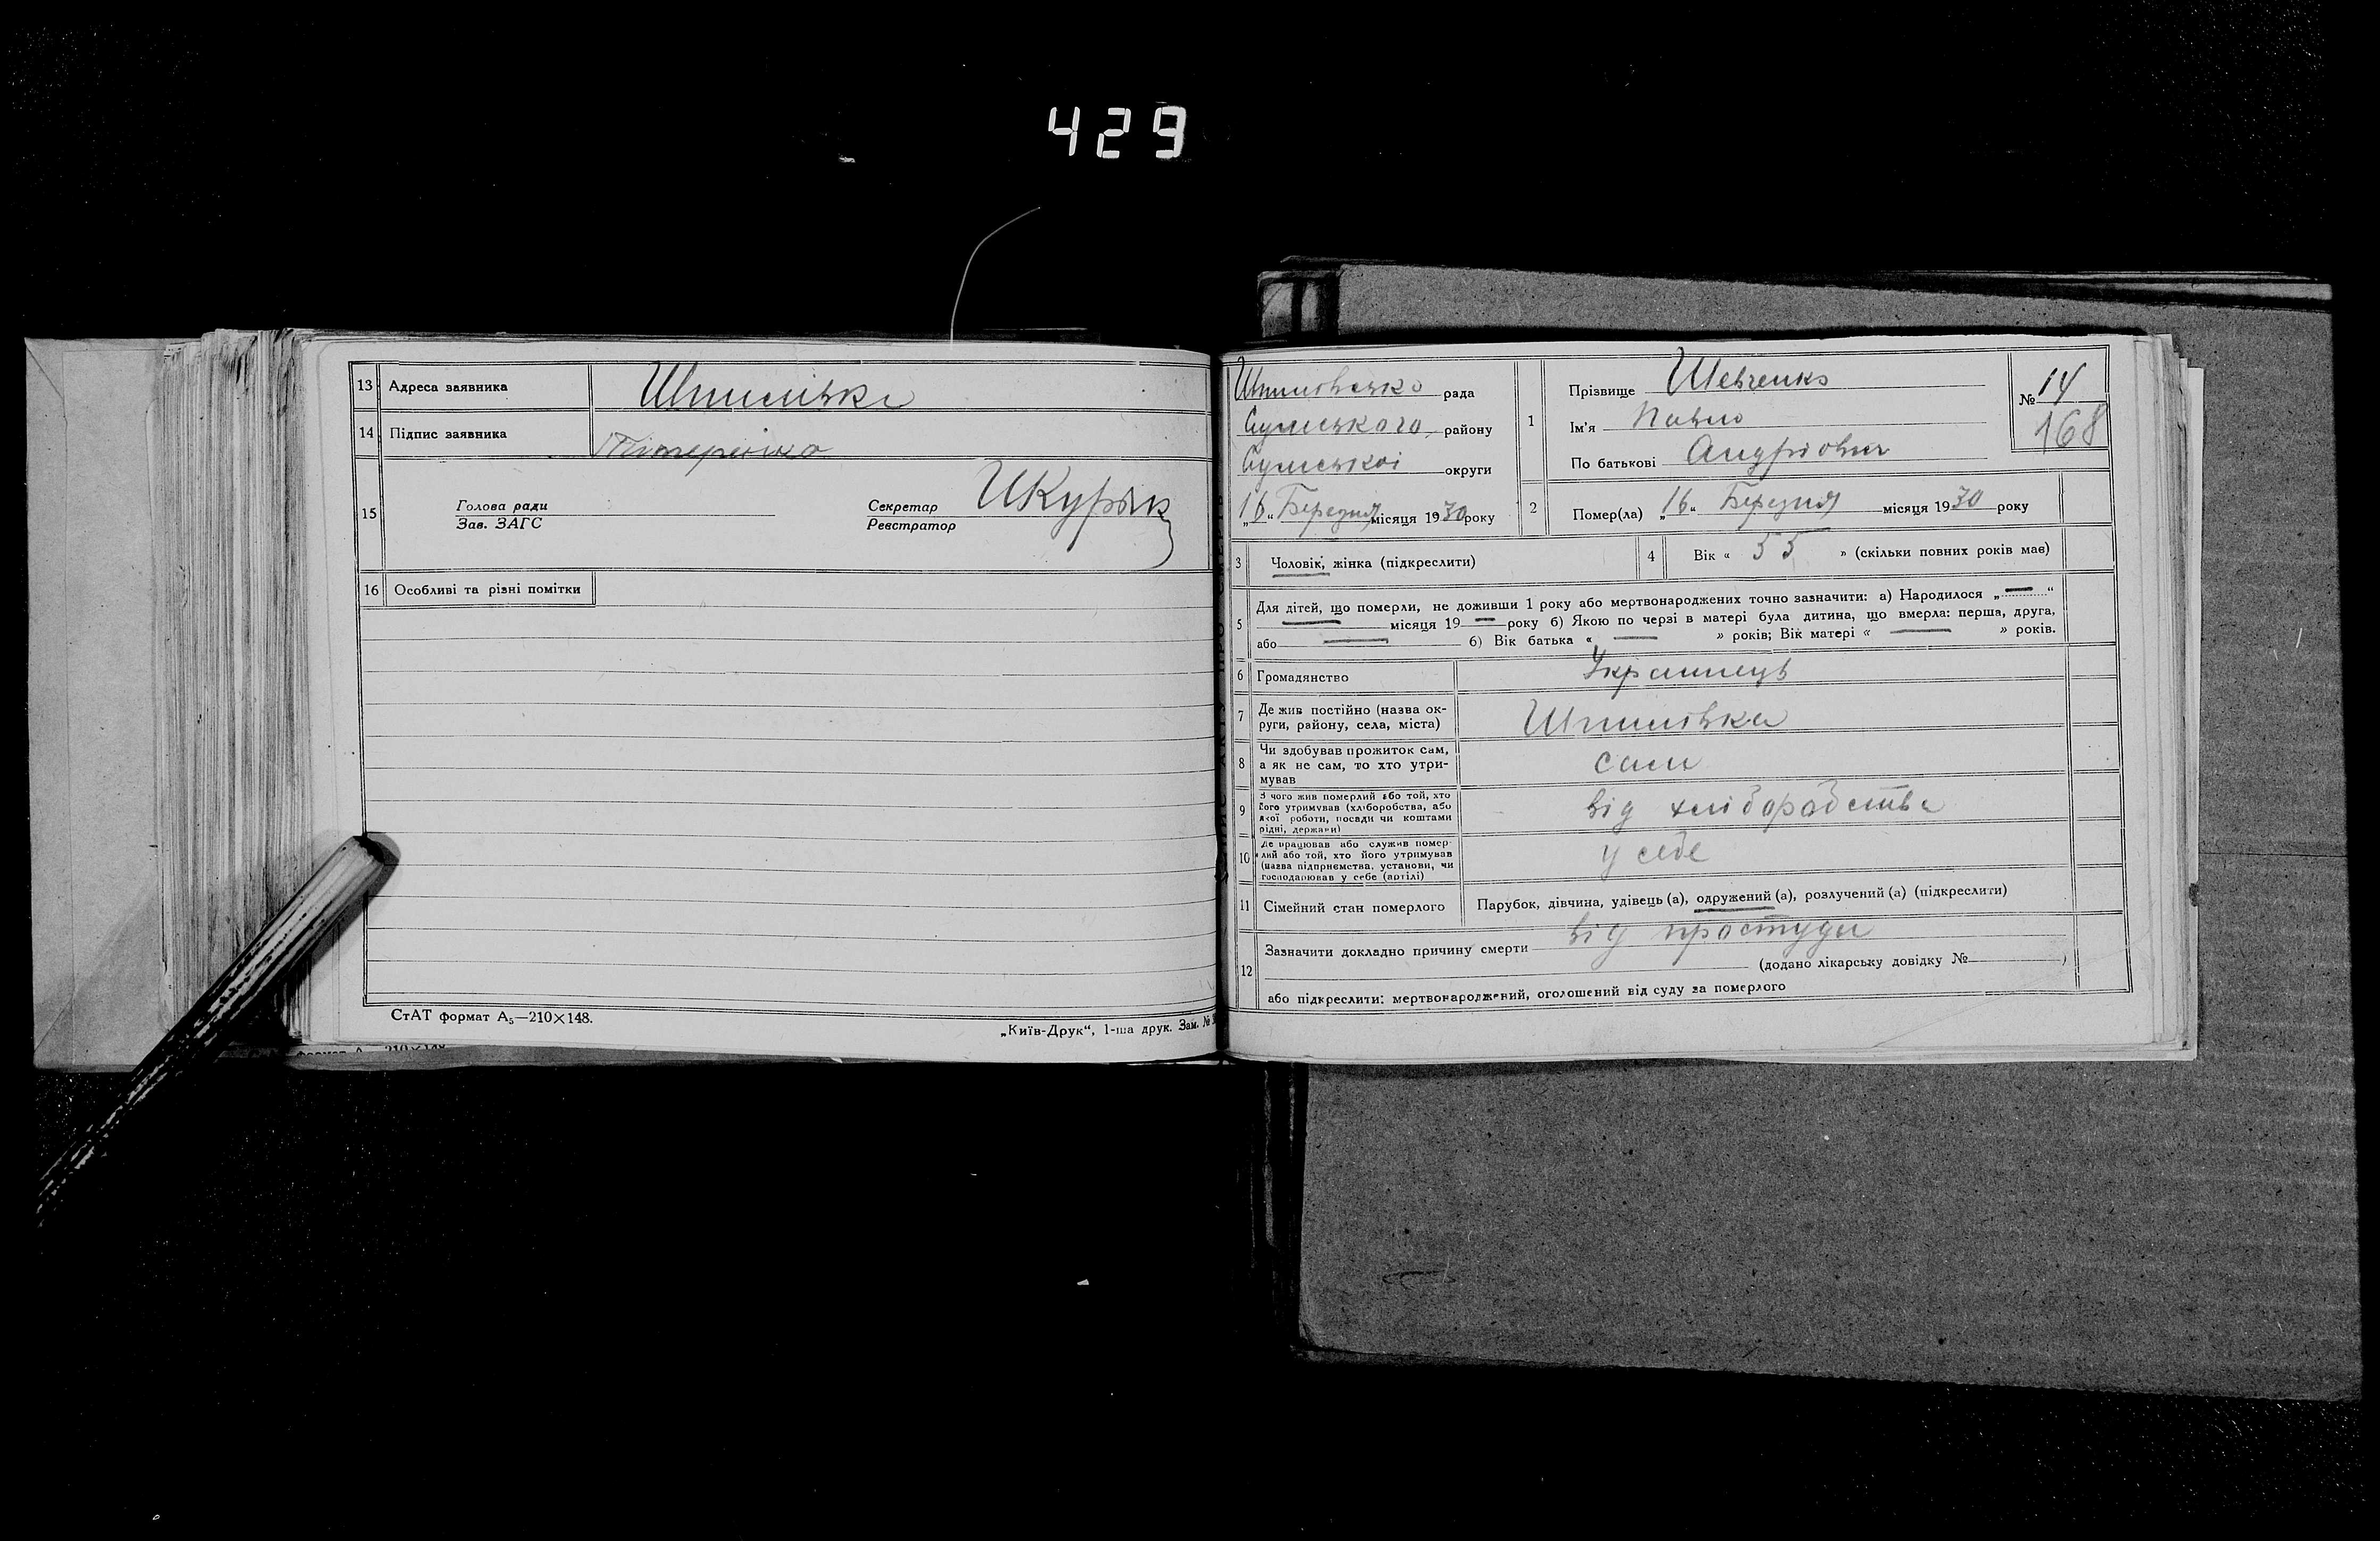 429
13 Адреса заявника Шпилівка
14 Підпис заявника
15 Голова ради
Зав. ЗАГС
Секретар
Реєстратор
16 Особливі та різні помітки
СтАТ формат А₅—210×148.
„Київ-Друк“, 1-ша друк. Зам. №
Шпилівсько рада
Сумського району
Сумської округи
„16“ Березня місяця 1930 року
1 Прізвище Шевченко
Ім'я Павло
По батькові Андрійович
№ 14
168
2 Помер(ла) „16“ Березня місяця 1930 року
3 Чоловік, жінка (підкреслити)
4 Вік « 55 » (скільки повних років має)
5 Для дітей, що померли, не доживши 1 року або мертвонароджених точно зазначити: а) Народилося „—“
— місяця 19 — року б) Якою по черзі в матері була дитина, що вмерла: перша, друга,
або — б) Вік батька « — » років; Вік матері « — » років.
6 Громадянство Українець
7 Де жив постійно (назва ок-
руги, району, села, міста) Шпилівка
8 Чи здобував прожиток сам,
а як не сам, то хто утри-
мував сам
9 З чого жив померлий або той, хто
його утримував (хліборобства, або
якої роботи, посади чи коштами
рідні, держави) від хліборобства
10 Де працював або служив помер-
лий або той, хто його утримував
(назва підприємства, установи, чи
господарював у себе (артілі) у себе
11 Сімейний стан померлого Парубок, дівчина, удівець (а), одружений (а), розлучений (а) (підкреслити)
12 Зазначити докладно причину смерти від простуди
(додано лікарську довідку № )
або підкреслити: мертвонароджений, оголошений від суду за померлого